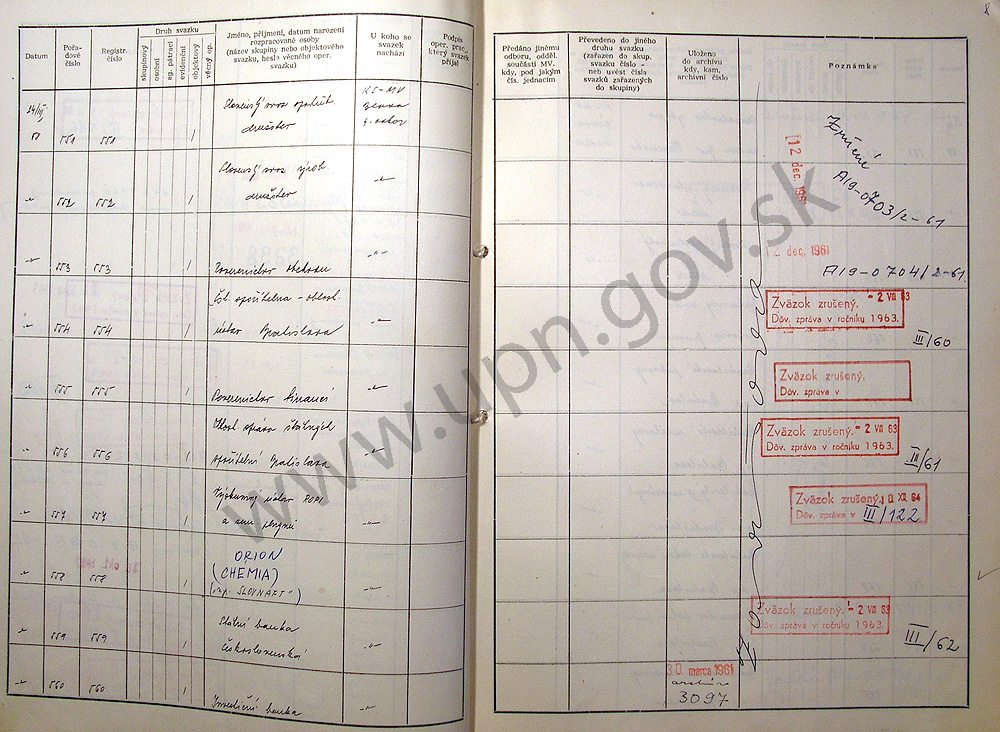 Datum
Pořa-
dové
číslo
Registr.
číslo
Druh svazku
skupinový
osobní
sg. pátrací
evidenční
objektový
věcný op.
Jméno, příjmení, datum narození
rozpracované osoby
(název skupiny nebo objektového
svazku, heslo věcného oper.
svazku)
U koho se
svazek
nachází
Podpis
oper. prac.,
který svazek
přijal
Předáno jinému
odboru, odděl.
součásti MV,
kdy, pod jakým
čís. jednacím
Převedeno do jiného
druhu svazku
(zařazen do skup.
svazku číslo -
neb uvést čísla
svazků zařazených
do skupiny)
Uloženo
do archivu
kdy, kam,
archivní číslo
Poznámka
551 551 1
Slovenský svaz
družstev
KS-MV
Zrušené
12 dec. 196
A19-0703/2-61
552 552 1
Slovenský svaz výrob.
družstev
553 553 1
Poverenictvo obchodu
12 dec. 1961
A19-0704/2-61.
554 554 1
spořitelna - oblast.
ústav Bratislava
Zväzok zrušený. - 2 VII 63
Dôv. zpráva v ročníku 1963.
III/60
555 555 1
Poverenictvo financií
Zväzok zrušený.
Dôv. zpráva v
556 556 1
Oblast. správa státných
spořitelní Bratislava
Zväzok zrušený. - 2 VII 63
Dôv. zpráva v ročníku 1963.
III/61
557 557 1
Výskumný ústav
Zväzok zrušený. 10 XII 64
Dôv. zpráva v III/122
558 558 1
ORION
(CHÉMIA)
(n.p. SLOVNAFT")
559 559 1
Státní banka
Československá
Zväzok zrušený. - 2 VII 63
Dôv. zpráva v ročníku 1963.
III/62
560 560 1
Investiční banka
30. marca 1961
archív
3097
www.upn.gov.sk